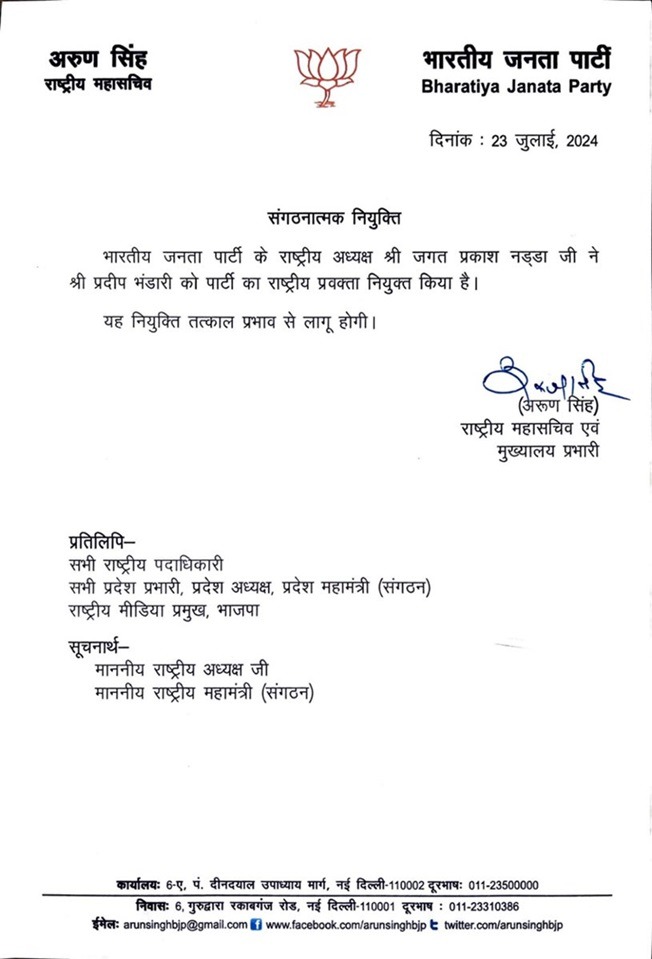 अरुण सिंह
राष्ट्रीय महासचिव
भारतीय जनता पार्टी
Bharatiya Janata Party
दिनांक : 23 जुलाई, 2024
संगठनात्मक नियुक्ति
भारतीय जनता पार्टी के राष्ट्रीय अध्यक्ष श्री जगत प्रकाश नड्डा जी ने
श्री प्रदीप भंडारी को पार्टी का राष्ट्रीय प्रवक्ता नियुक्त किया है।
यह नियुक्ति तत्काल प्रभाव से लागू होगी।
(अरूण सिंह)
राष्ट्रीय महासचिव एवं
मुख्यालय प्रभारी
प्रतिलिपि–
सभी राष्ट्रीय पदाधिकारी
सभी प्रदेश प्रभारी, प्रदेश अध्यक्ष, प्रदेश महामंत्री (संगठन)
राष्ट्रीय मीडिया प्रमुख, भाजपा
सूचनार्थ–
माननीय राष्ट्रीय अध्यक्ष जी
माननीय राष्ट्रीय महामंत्री (संगठन)
कार्यालयः 6-ए, पं. दीनदयाल उपाध्याय मार्ग, नई दिल्ली-110002 दूरभाषः 011-23500000
निवासः 6, गुरुद्वारा रकाबगंज रोड, नई दिल्ली-110001 दूरभाष : 011-23310386
ईमेलः arunsinghbjp@gmail.com www.facebook.com/arunsinghbjp twitter.com/arunsinghbjp